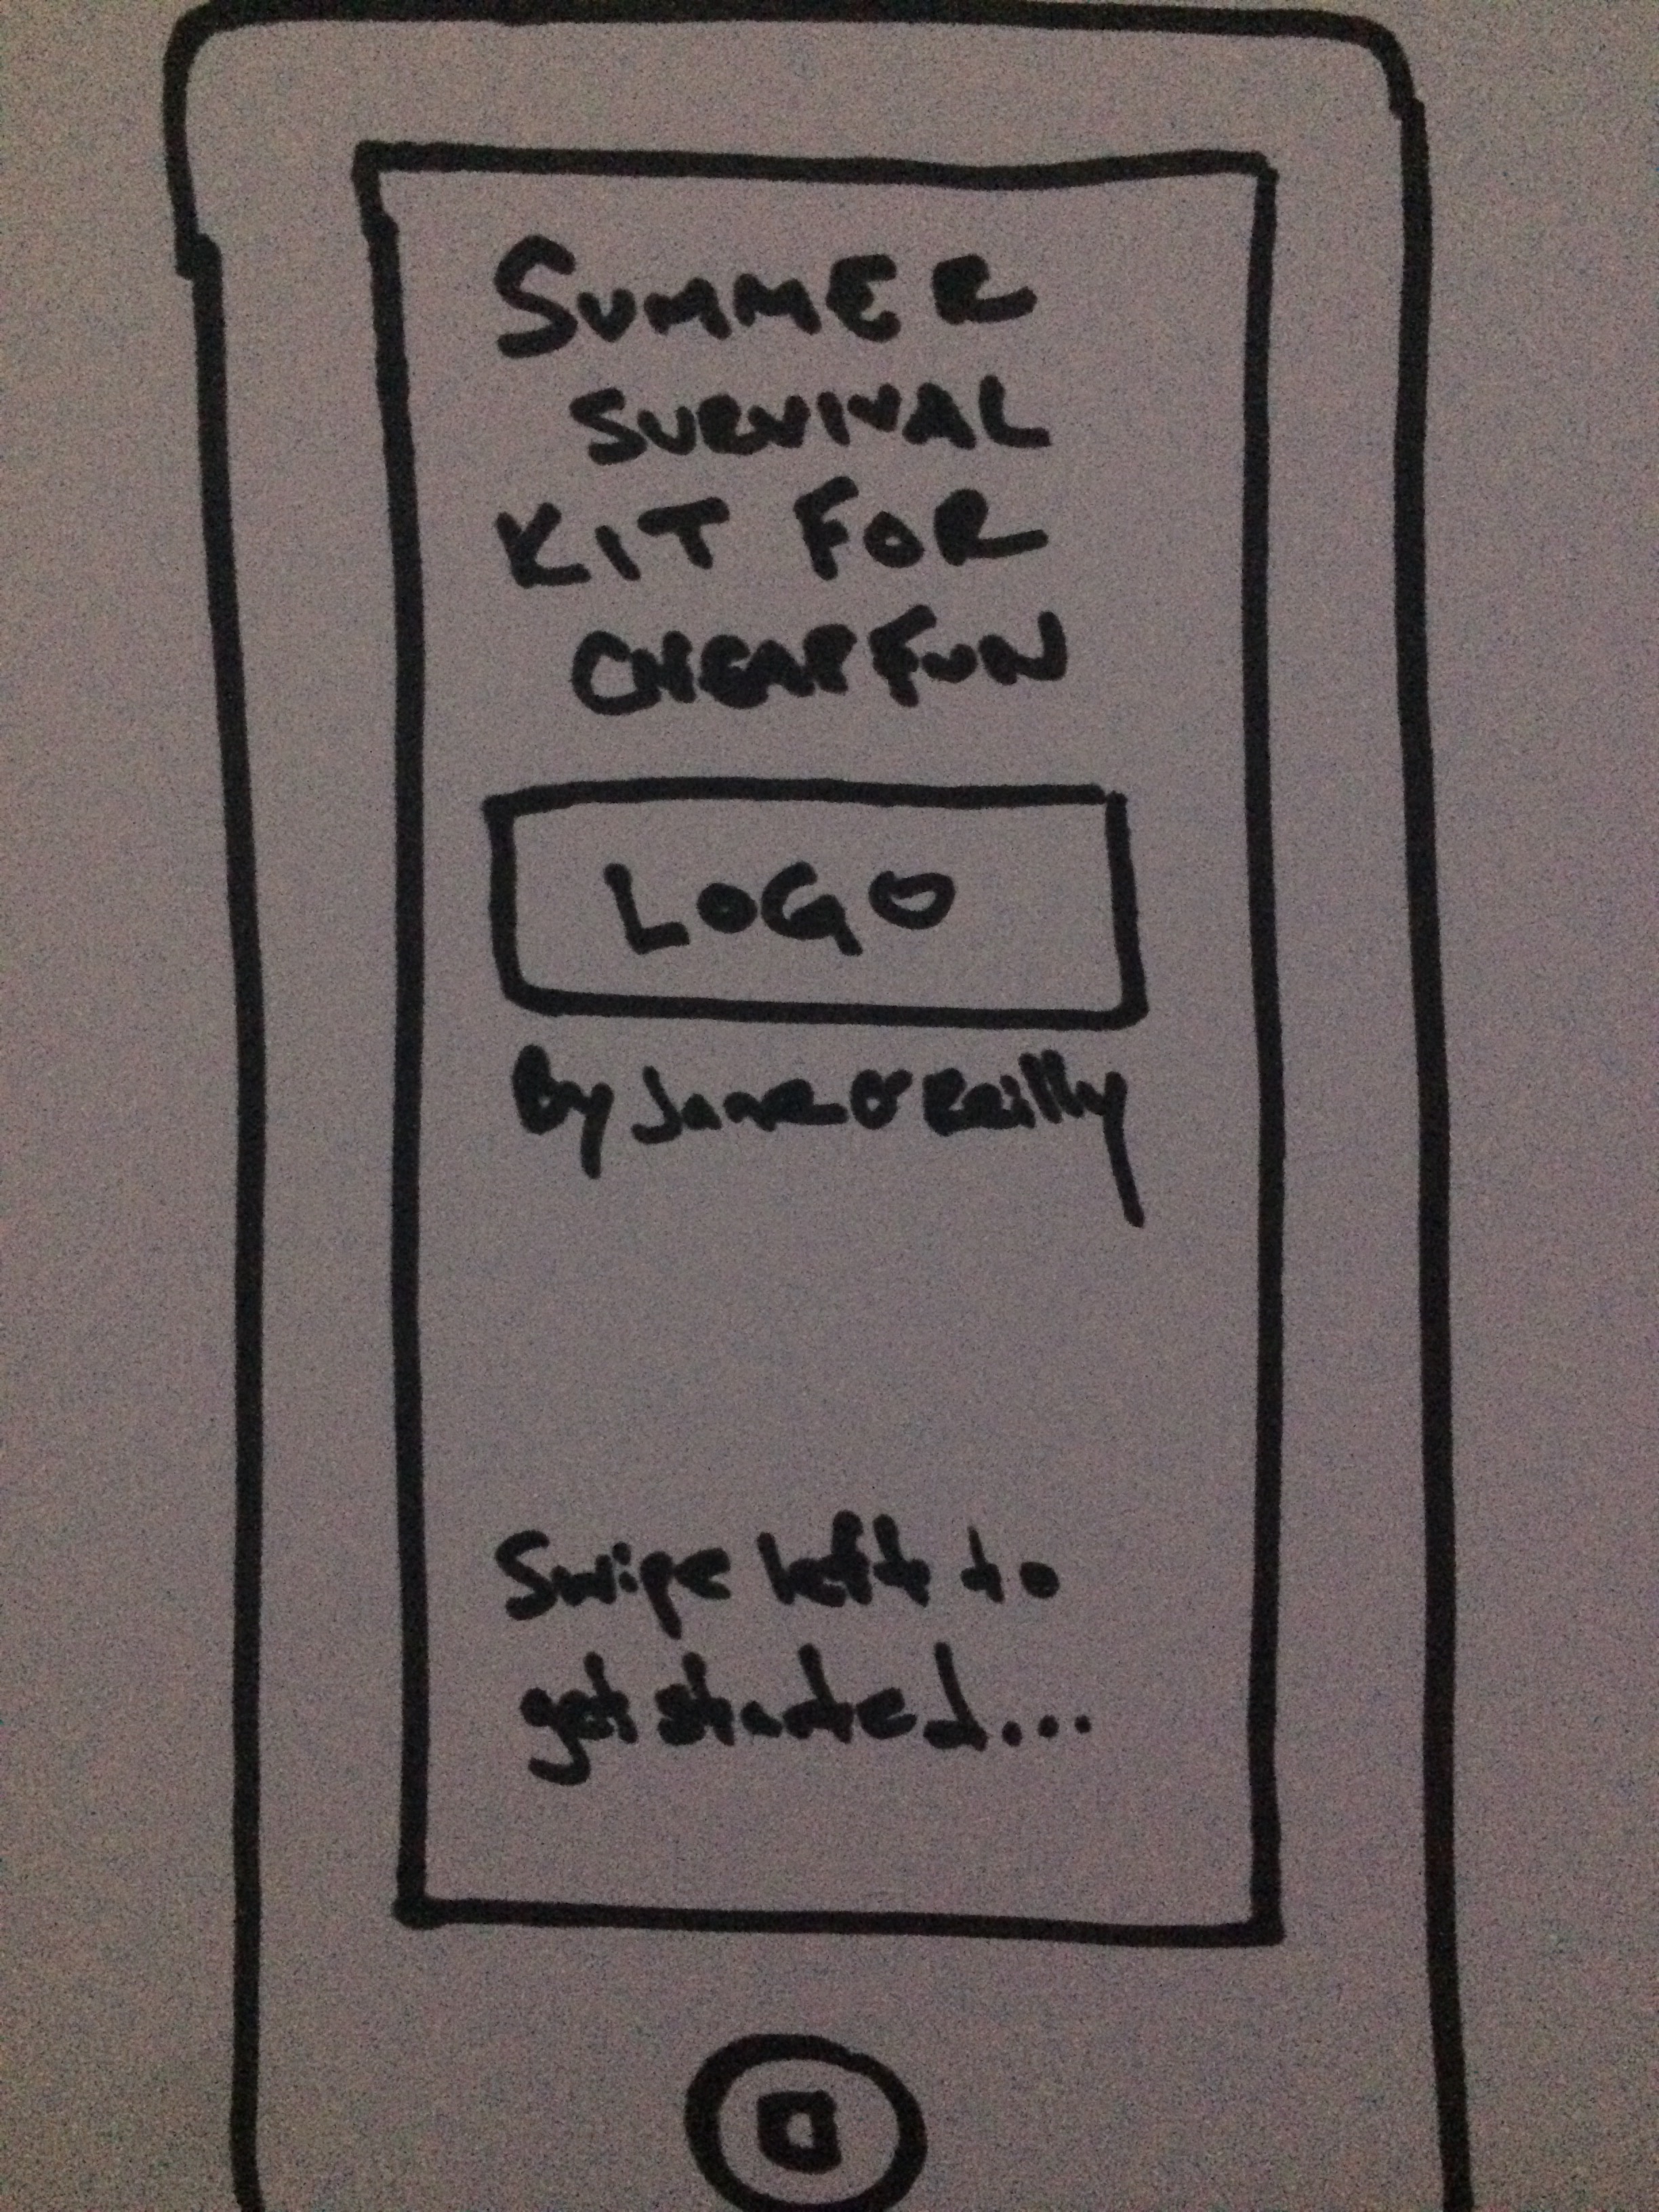 SUMMER
SURVIVAL
KIT FOR
CHEAP FUN
LOGO
By Jane O'Reilly
Swipe left to
get started...